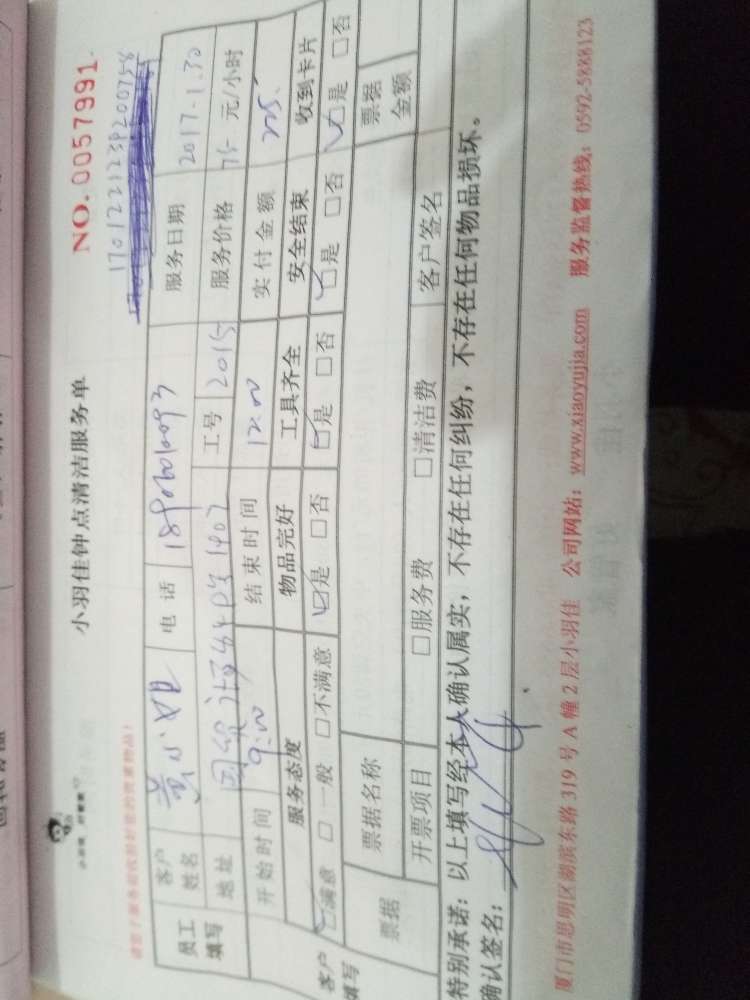 小羽佳钟点清洁服务单
NO.0057991.
170122123P200758
员工填写 客户姓名 黄小姐 电话 服务日期 2017.1.30
地址 工号 2015 服务价格 75 元/小时
开始时间 9:00 结束时间 12:00 实付金额 225.
服务态度 物品完好 工具齐全 安全结束 收到卡片
客户填写 ☑满意 □一般 □不满意 ☑是 □否 ☑是 □否 ☑是 □否 ☑是 □否
票据 票据名称 票据金额
开票项目 □服务费 □清洁费 客户签名
特别承诺：以上填写经本人确认属实，不存在任何纠纷，不存在任何物品损坏。
确认签名：
厦门市思明区湖滨东路 319 号 A 幢 2 层小羽佳 公司网站：www.xiaoyujia.com 服务监督热线：0592-5888123